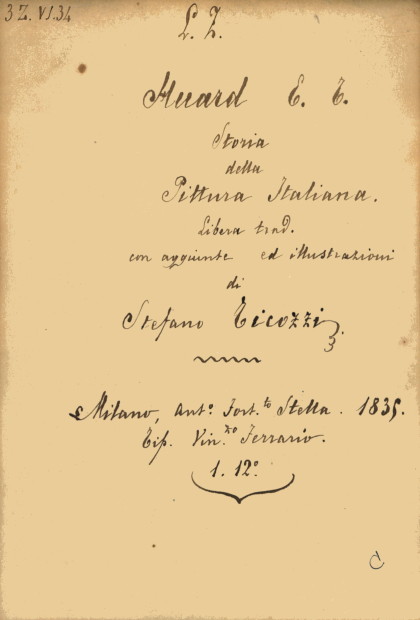 3 Z. VI. 34
L. Z.
Huard E. T.
Storia
della
Pittura Italiana.
Libera trad.
con aggiunte ed illustrazioni
di
Stefano Ticozzi.
Milano, Ant.º Fort.to Stella. 1835.
Tip. Vin.zo Ferrario.
1. 12º
C